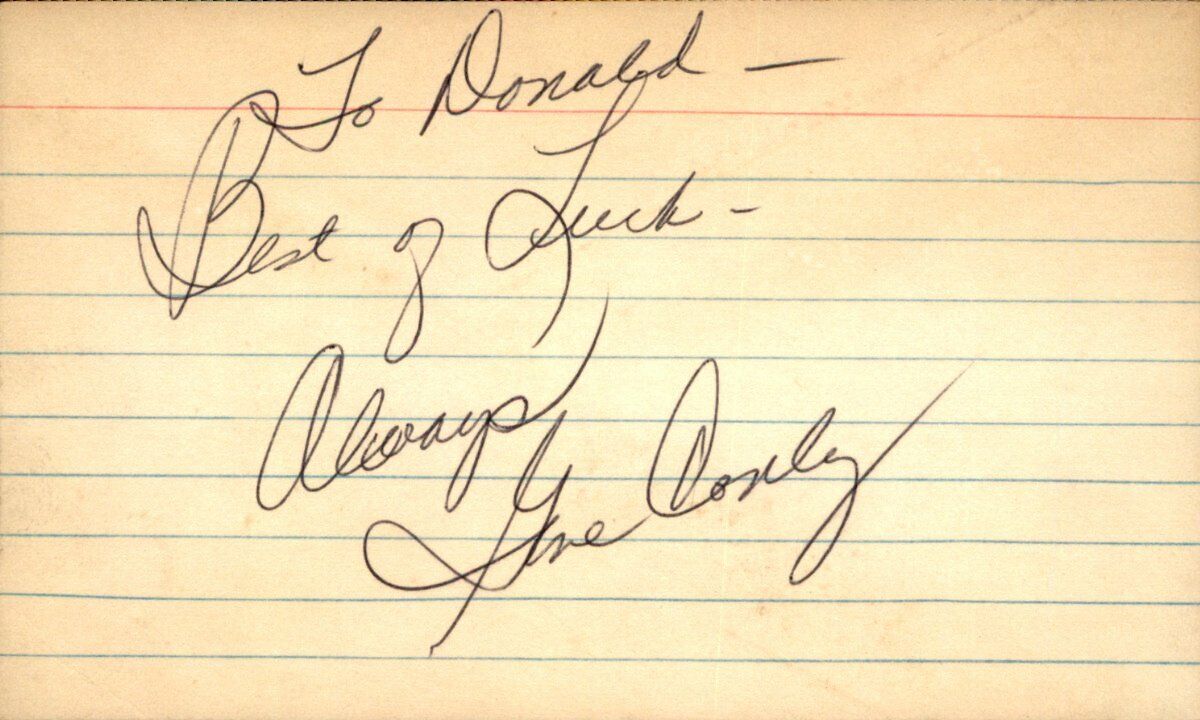 To Donald —
Best of Luck -
Always,
Gene Conley